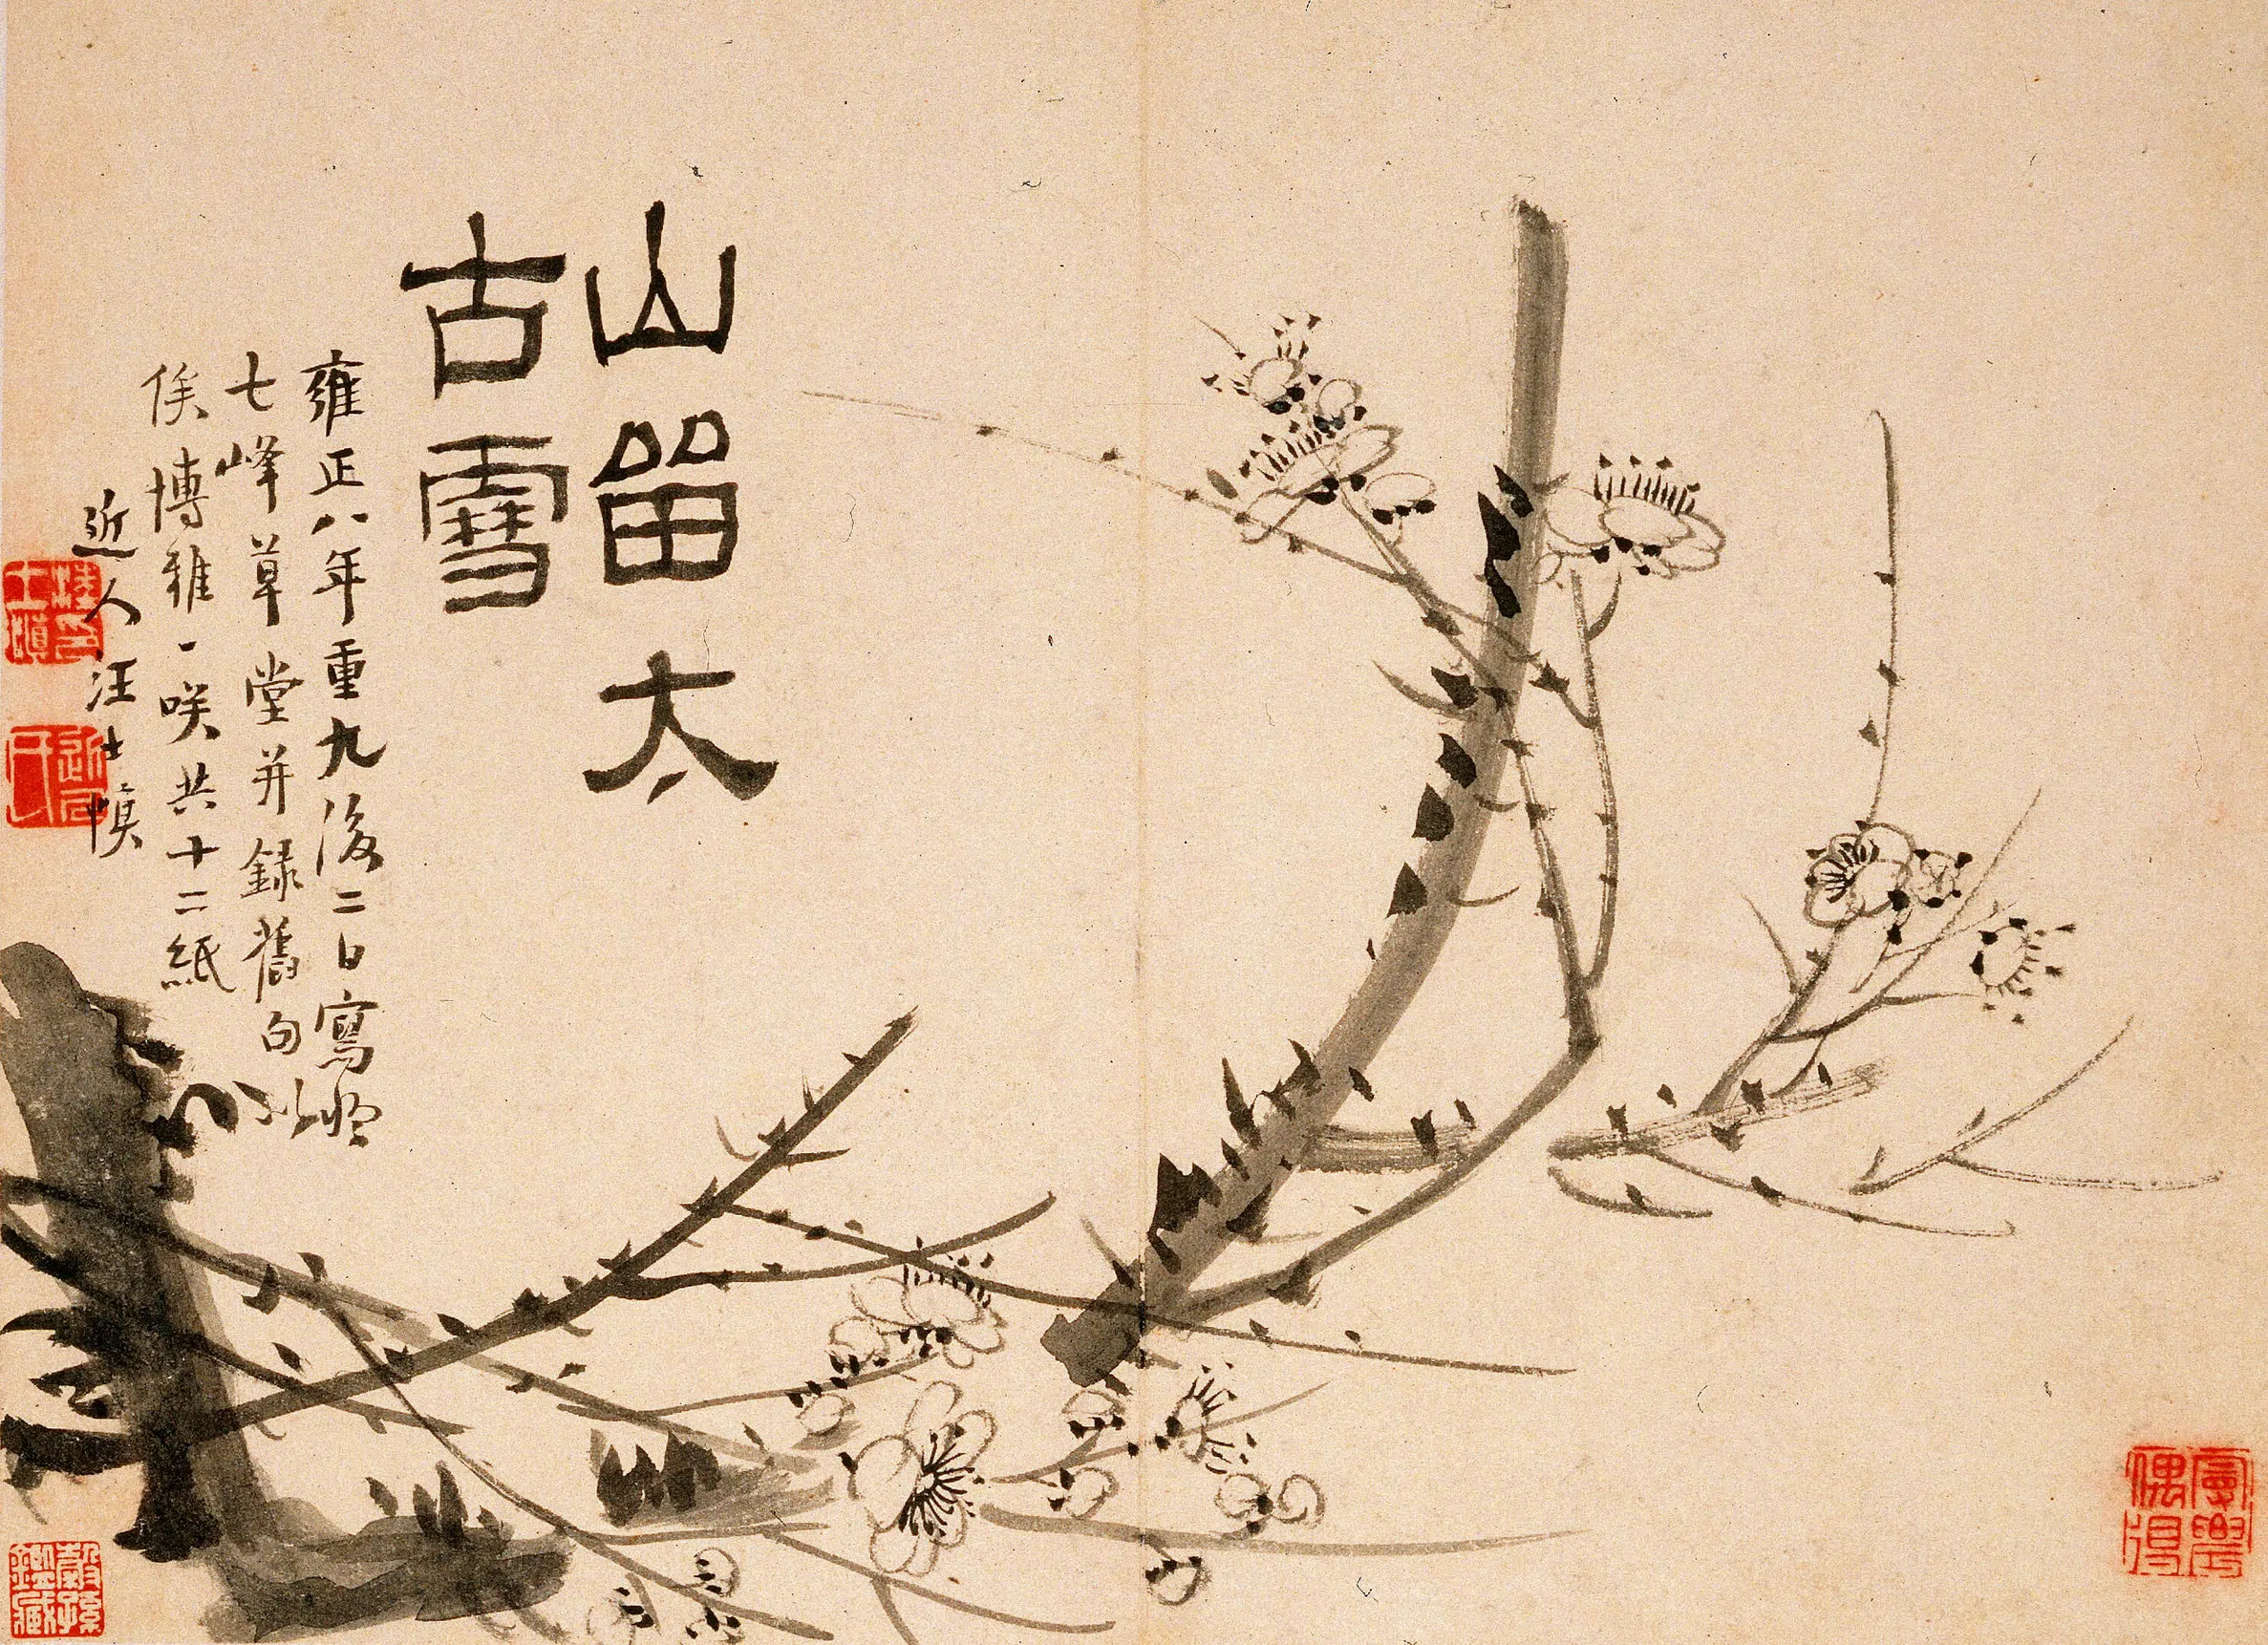 山留太
古雪
雍正八年重九後二日寫於
七峰草堂并録舊句以
俟博雅一咲共十二紙
近人汪士慎